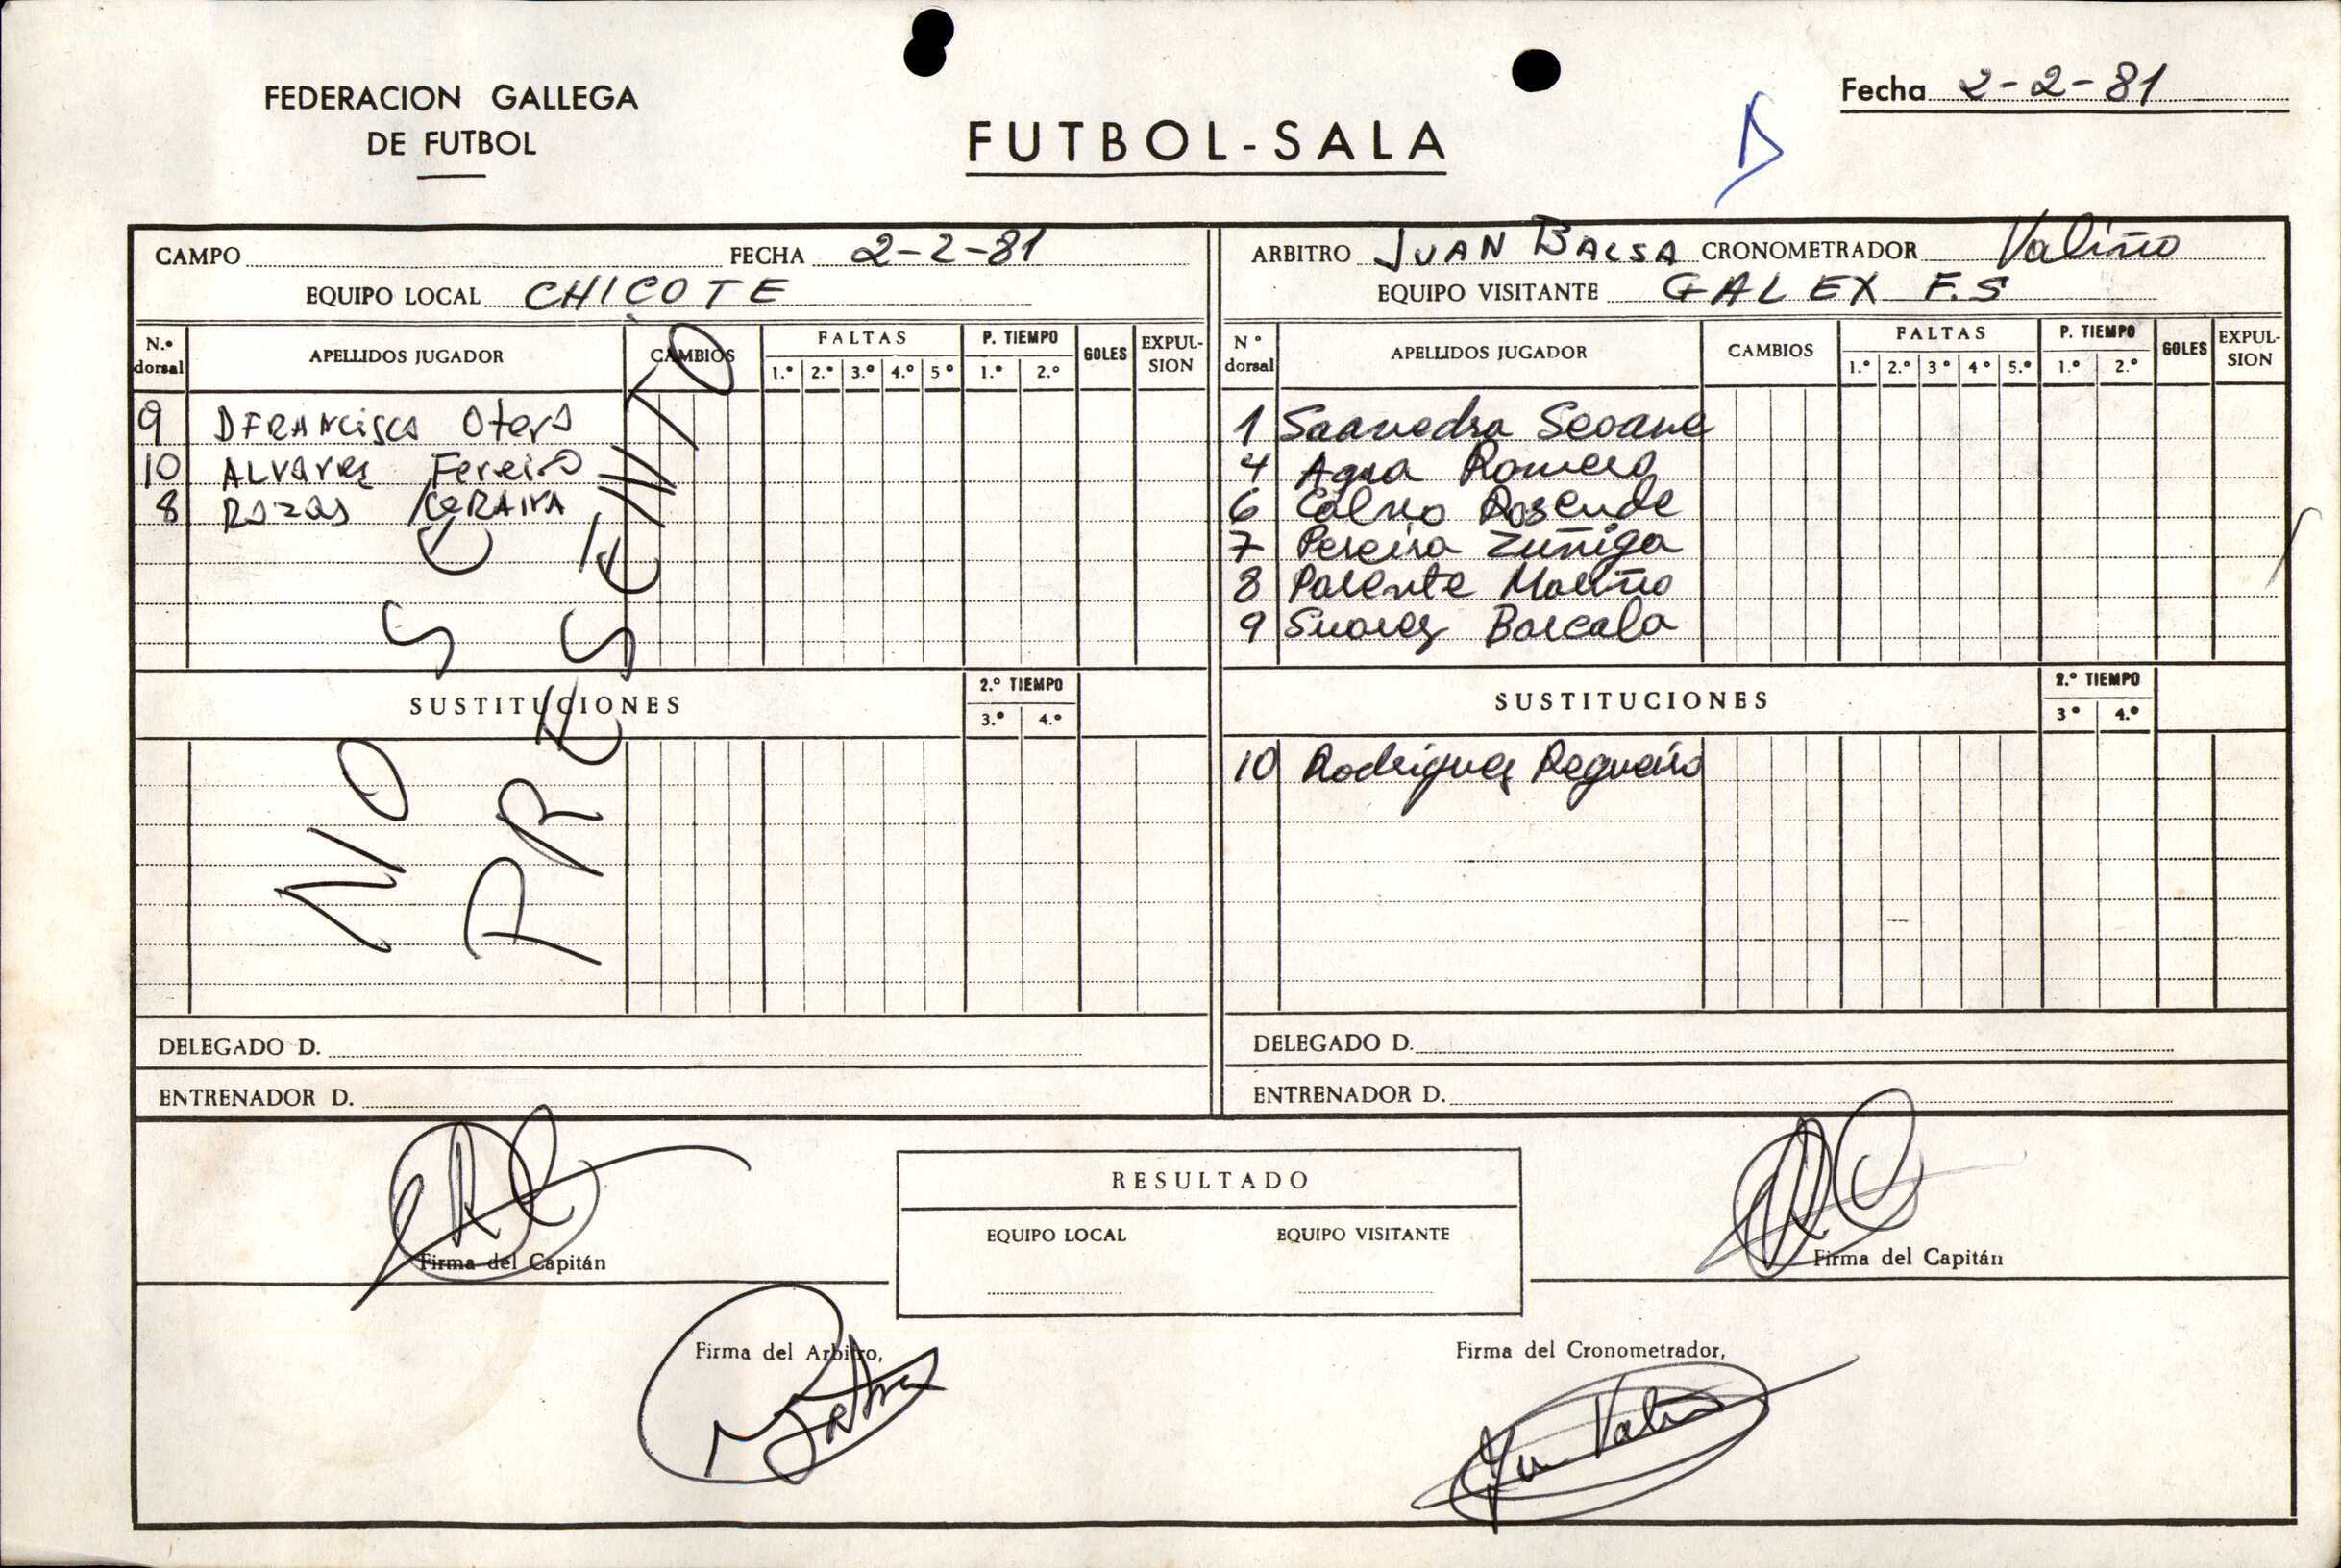 FEDERACION GALLEGA
DE FUTBOL
FUTBOL-SALA
Fecha 2-2-81
CAMPO FECHA 2-2-81
EQUIPO LOCAL CHICOTE
N.º dorsal APELLIDOS JUGADOR CAMBIOS FALTAS 1.º 2.º 3.º 4.º 5º P. TIEMPO 1.º 2.º GOLES EXPULSION
9 DFRANCISCO Otero
10 ALVAREZ Fereiro
8 ROZAS
NO SE PRESENTO
SUSTITUCIONES 2.º TIEMPO 3.º 4.º
DELEGADO D.
ENTRENADOR D.
ARBITRO JUAN BALSA CRONOMETRADOR Valiño
EQUIPO VISITANTE GALEX F.S
Nº dorsal APELLIDOS JUGADOR CAMBIOS FALTAS 1.º 2.º 3º 4º 5.º P. TIEMPO 1.º 2.º GOLES EXPULSION
1 Saavedra Seoane
4 Agra Romero
6 Calvo Rosende
7 Pereira Zuñiga
8 Parente Mariño
9 Suarez Barcala
SUSTITUCIONES 2.º TIEMPO 3º 4.º
10 Rodriguez Regueiro
DELEGADO D.
ENTRENADOR D.
Firma del Capitán
RESULTADO
EQUIPO LOCAL EQUIPO VISITANTE
Firma del Capitán
Firma del Arbitro,
Firma del Cronometrador,